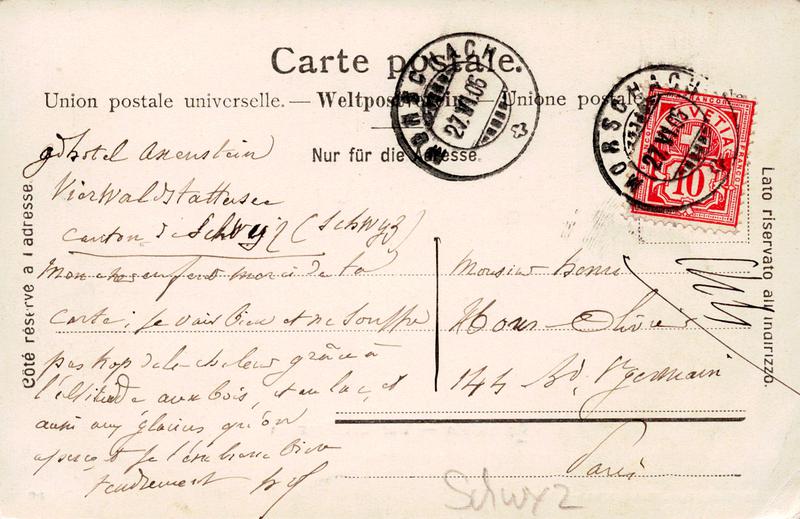 Carte postale.
Union postale universelle. — Weltpostverein. — Unione postale
Nur für die Adresse.
Côté réservé à l'adresse.
Lato riservato all'indirizzo.
MORSCHACH
27.VI.06
MORSCHACH
27.VI.06
HELVETIA
FRANCO
10
gd hotel Axenstein
Vierwaldstattersee
Canton de Schwyz (Schwyz)
Mon cher enfant merci de ta
carte; je vais bien et ne souffre
pas trop de la chaleur grâce à
l'altitude aux bois, et au lac, et
aussi aux glaciers qu'on
aperçoit je t'embrasse bien
tendrement
Monsieur Henri
Olivier
144 Bd. St germain
Paris
Schwyz